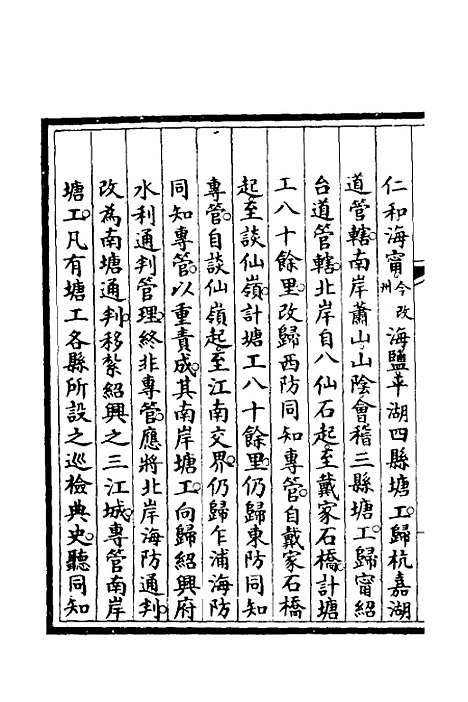 仁和海甯今改州海鹽平湖四縣塘工歸杭嘉湖
道管轄南岸蕭山山陰會稽三縣塘工歸甯紹
台道管轄北岸自八仙石起至戴家石橋計塘
工八十餘里改歸西防同知專管自戴家石橋
起至談仙嶺計塘工八十餘里仍歸東防同知
專管自談仙嶺起至江南交界仍歸乍浦海防
同知專管以重責成其南岸塘工向歸紹興府
水利通判管理終非專管應將北岸海防通判
改為南塘通判移紮紹興之三江城專管南岸
塘工凡有塘工各縣所設之巡檢典史聽同知